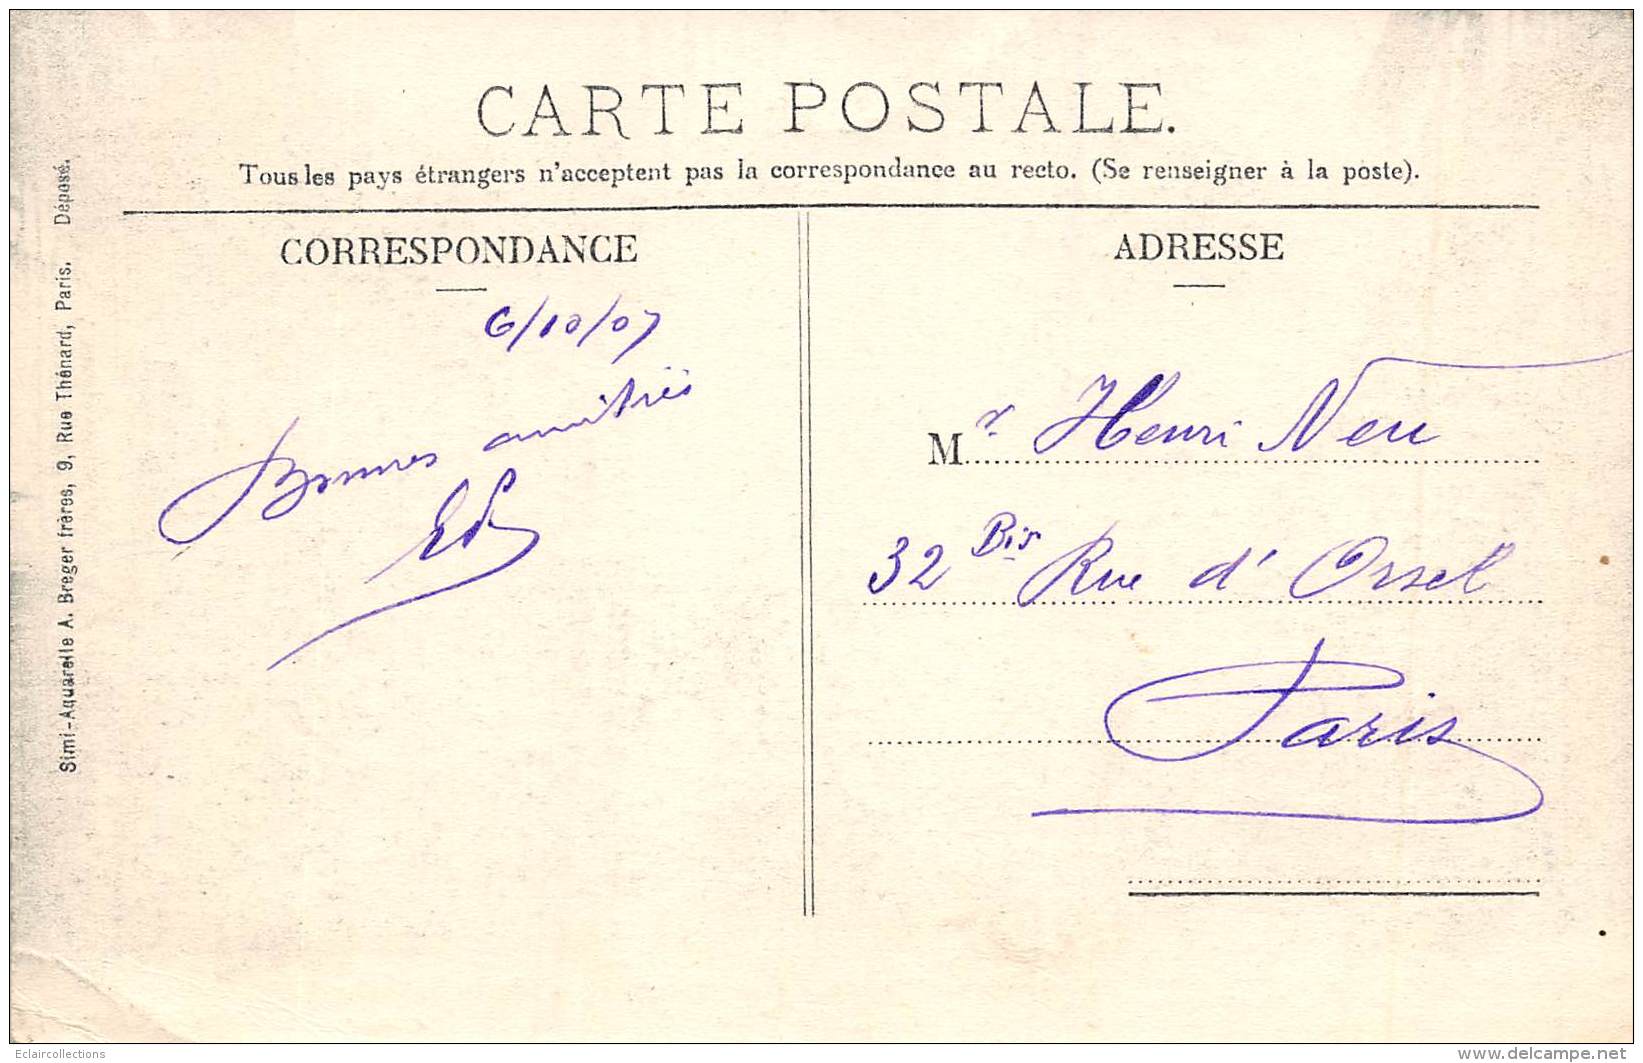 CARTE POSTALE.
Tous les pays étrangers n'acceptent pas la correspondance au recto. (Se renseigner à la poste).
Simi-Aquarelle A. Breger frères, 9, Rue Thénard, Paris. Déposé.
CORRESPONDANCE
6/10/07
Bonnes amitiés
ADRESSE
Mr Henri Neu
32 Bis Rue d'Orsel
Paris
Eclaircollections
www.delcampe.net